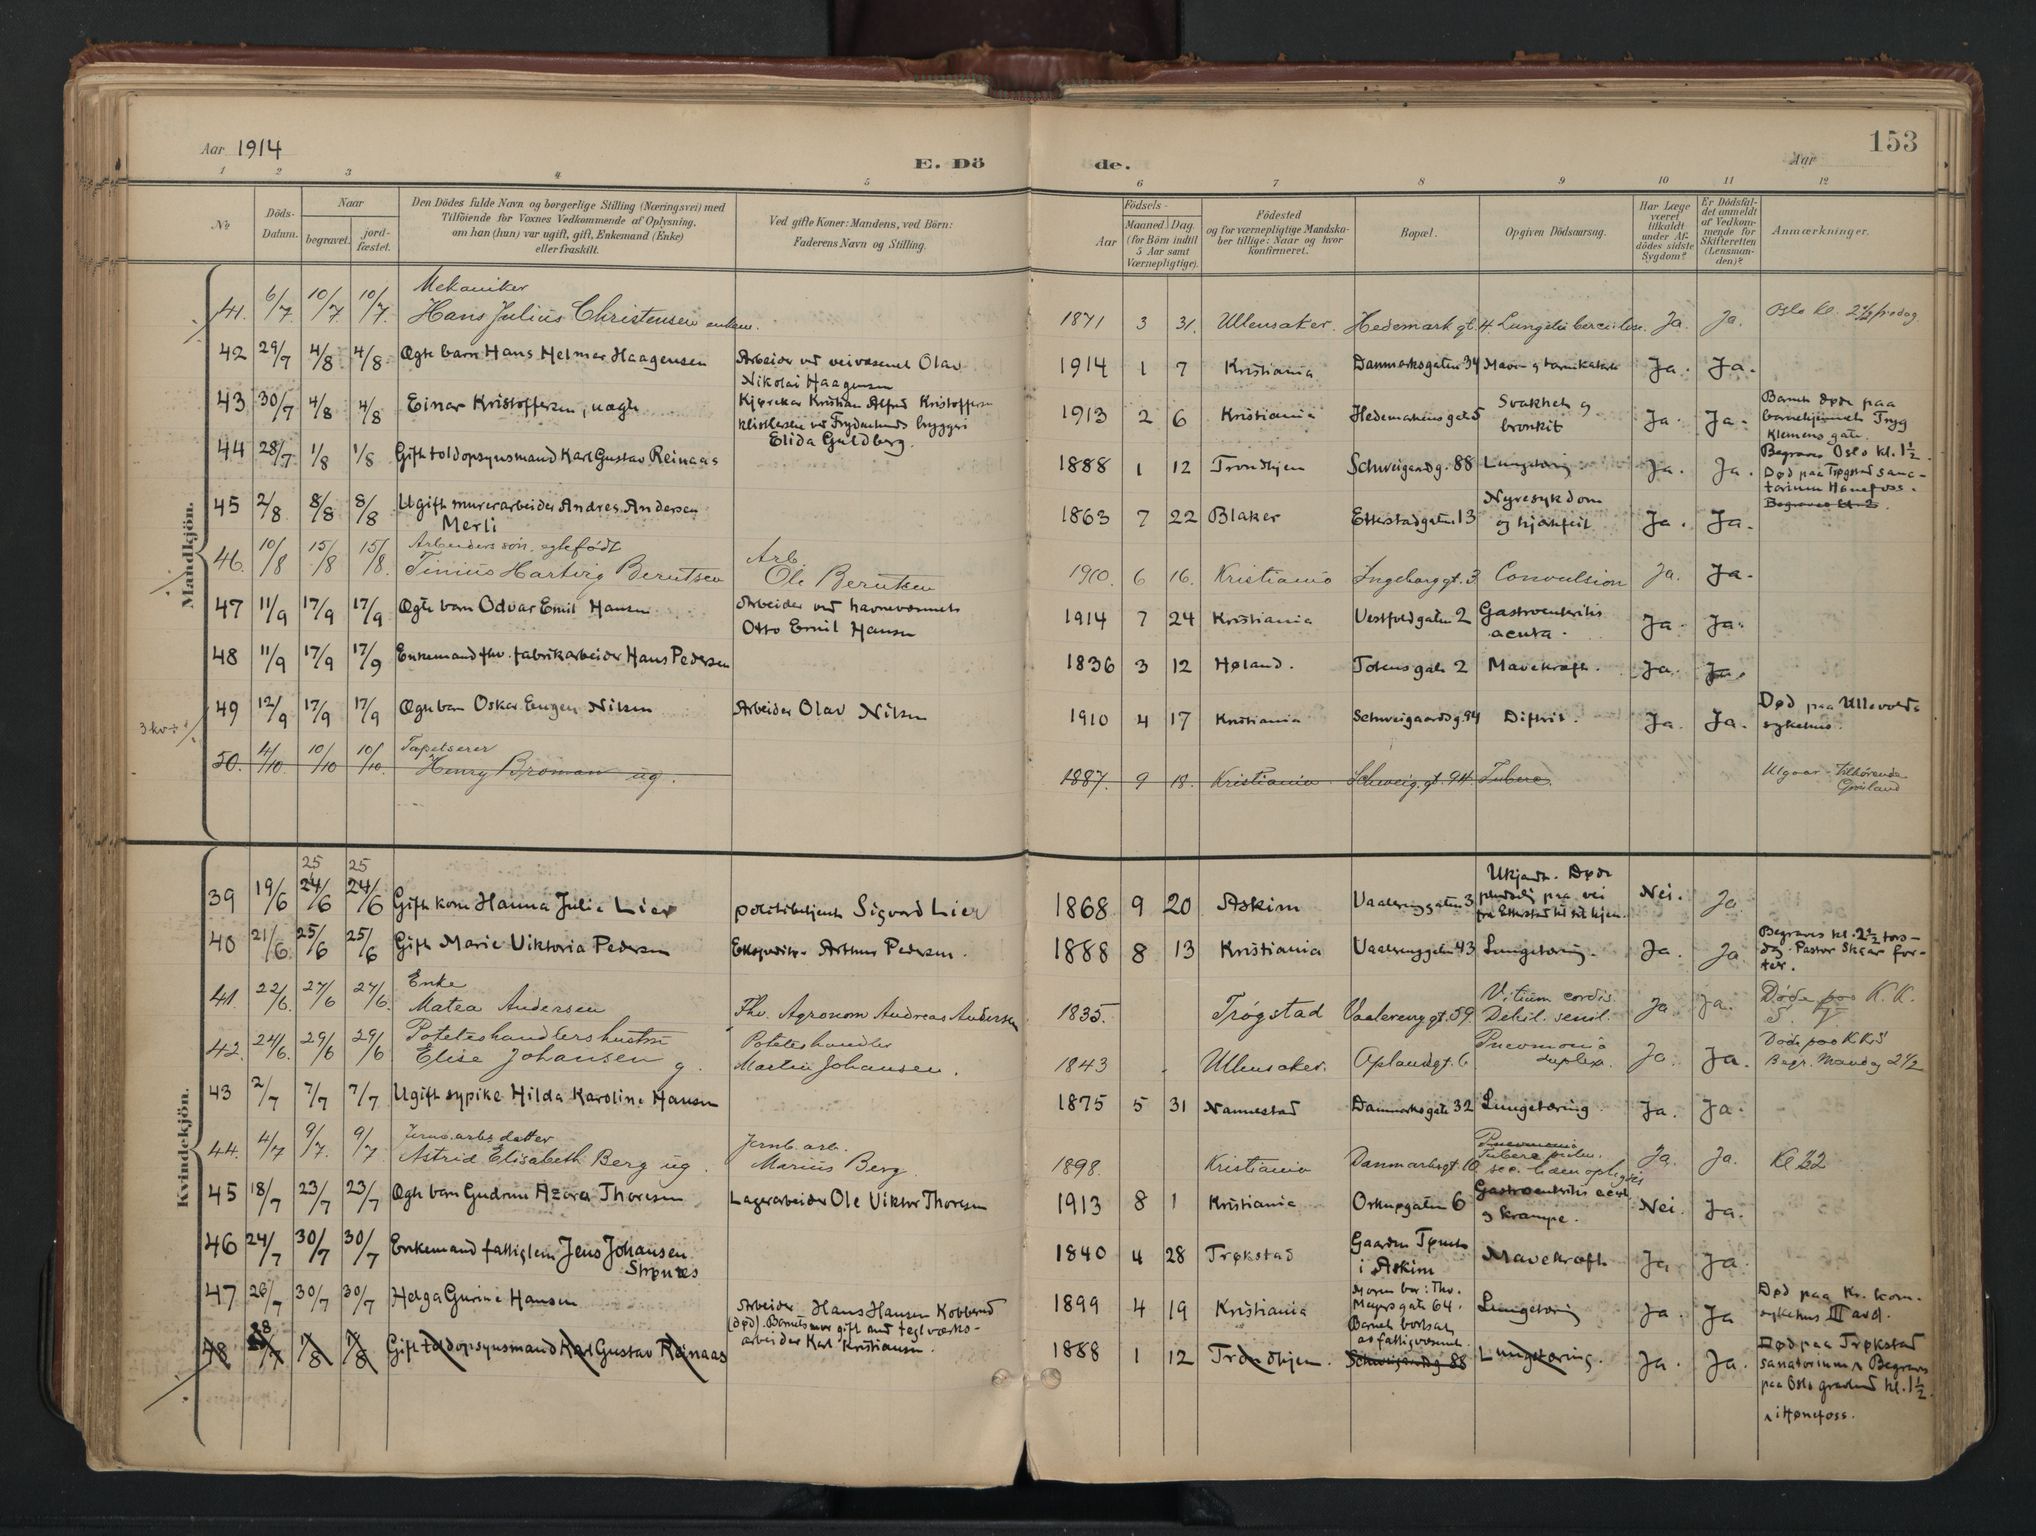 Aar 1914
E. Döde.
153
Aar
1 2 3 4 5 6 7 8 9 10 11 12
No
Döds-Datum.
Naar
begravet.
jord-fæstet.
Den Dödes fulde Navn og borgerlige Stilling (Næringsvei) med
Tilföiende for Voxnes Vedkommende af Oplysning,
om han (hun) var ugift, gift, Enkemand (Enke)
eller fraskilt.
Ved gifte Koner: Mandens, ved Börn:
Faderens Navn og Stilling.
Födsels-
Aar
Maaned Dag.
(for Börn indtil
5 Aar samt
Værnepligtige).
Födested
og for værnepligtige Mandska-
ber tillige: Naar og hvor
konfirmeret.
Bopæl.
Opgiven Dödsaarsag.
Har Læge
været
tilkaldt
under Af-
dödes sidste
Sygdom?
Er Dödsfal-
det anmeldt
af Vedkom-
mende for
Skifteretten
(Lensman-
den)?
Anmærkninger.
Mandkjön.
41. 6/7 10/7. 10/7. Mekaniker
Hans Julius Christensen
1871 3 31. Ullensaker. Hedemark gt. 4. Lungetuberculose. Ja. Ja. Oslo kl. 2½ fredag
42 29/7 4/8 4/8 Ægte barn Hans Helmer Haagensen
Arbeider ved veivæsenet Olav
Nikolai Haagensen
1914 1 7 Kristiania Danmarksgaten 34 Mave og tarmkatarh Ja. Ja.
43 30/7 4/8 4/8 Einar Kristoffersen, uægte
Kjørekar Kristian Alfred Kristoffersen
Elida Guldberg.
1913 2 6 Kristiania Hedemarkens gate 5 Svakhet og
bronkit Ja. Ja.
Barnet døde paa
barnehjemmet Tryg
Klemens gate.
44 28/7 1/8 1/8 Gift toldopsynsmand Karl Gustav Reinaas
1888 1 12 Trondhjem Schweigaardsg. 88 Lungetæring Ja. Ja.
Begraves Oslo kl. 1½.
Død paa Trøgstad sana-
torium Hønefoss.
45 2/8 8/8 8/8 Ugift murerarbeider Andres Andersen
Merli
1863 7 22 Blaker Etterstadgaten 13 Nyresykdom
og hjertefeil Ja. Ja.
Begraves kl. 2
46. 10/8 15/8 15/8. Arbeiders søn, egtefødt
Tinius Hartvig Berntsen
Arb.
Ole Berntsen
1910. 6 16. Kristiania Ingeborggt. 3 Convulsion Ja. Ja.
47 11/9 17/9 17/9 Ægte barn Odvar Emil Hansen
Arbeider ved havnevæsenet
Otto Emil Hansen
1914 7 24 Kristiania Vestfoldgaten 2 Gastroenteritis
acuta. Ja. Ja.
48 11/9 17/9 17/9 Enkemand fhv. fabrikarbeider Hans Pedersen
1836 3 12 Høland. Totens gate 2 Mavekræft. Ja. Ja.
49 12/9 17/9 17/9 Ægte barn Oskar Eugen Nilsen
Arbeider Olav Nilsen
1910 4 17 Kristiania Schweigaardsg. 94 Difterit. Ja. Ja. Død paa Ullevolds
sykehus.
50. 4/10. 10/10 10/10. Tapetserer
Henry Broman ug.
1887. 9 18. Kristiania Schweig. gt. 94. Tuberc.
Utgaar - tilhørende
Grønland
Kvindekjön.
25 25
39 19/6 24/6 24/6 Gift kone Hanna Julie Lier
politibetjent Sigvard Lier
1868 9 20 Askim Vaalerenggaten 3 Ukjendt. Døde
pludselig paa vei
fra Etterstad til sit hjem. Nei. Ja.
40 21/6 25/6 25/6 Gift Marie Viktoria Pedersen
Ekspeditør Arthur Pedersen.
1888 8 13 Kristiania Vaalerenggaten 43 Lungetæring. Ja. Ja.
Begraves kl. 2½ tors-
dag. Pastor Skaar for-
retter.
41. 22/6. 27/6 27/6 Enke
Matea Andersen
Fhv. Agronom Andreas Andersen
1835. Trøgstad Vaalereng gt. 59 Vitium cordis
Debil. senil. Ja. Ja. Døde paa K.K.
42. 24/6. 29/6 29/6 Poteteshandlers hustru
Elise Johansen g.
Poteteshandler
Martin Johansen.
1843 Ullensaker. Oplandgt. 6 Pneumonia
duplex. Ja. Ja. Døde paa K.K.S
Begr. Mandag 2½
43 2/7 7/7 7/7 Ugift sypike Hilda Karoline Hansen
1875 5 31 Nannestad Danmarksgate 32 Lungetæring. Ja. Ja.
44. 4/7 9/7. 9/7 Jernb. arb. datter
Astrid Elisabeth Berg ug.
Jernb. arb.
Marius Berg.
1898. Kristiania Danmarksgt. 10 Pneumonia
Tuberc. pulm. Ja. Ja. Kl
45 18/7 23/7 23/7 Ægte barn Gudrun Azora Thoresen
Lagerarbeider Ole Viktor Thoresen
1913 8 1 Kristiania Orknøgaten 6 Gastroenteritis acut
og krampe. Nei. Ja.
46 24/7 30/7 30/7 Enkemand fattiglem Jens Johansen
Strønes
1840 4 28 Trøkstad Gaarden
i Askim Mavekræft Ja Ja.
47 26/7 30/7 30/7 Helga Gurine Hansen
Arbeider Hans Hansen Kobberud
(død). Barnets mor gift med teglverks-
arbeider Karl Kristiansen.
1899 4 19 Kristiania Moren bor: Thv.
Meyers gate 64.
Barnet bortsat
av fattigvæsenet. Lungetæring Ja. Ja
Død paa Kr. kom.
sykehus III avd.
48 28/7 1/8 1/8 Gift toldopsynsmand Karl Gustav Reinaas
1888 1 12 Trondhjem. Schweigaardsg. 88 Lungetæring. Ja. Ja.
Død paa Trøkstad
sanatorium ʌ Begraves
paa Oslo gravlund kl. 1½.
ʌ i Hønefoss.